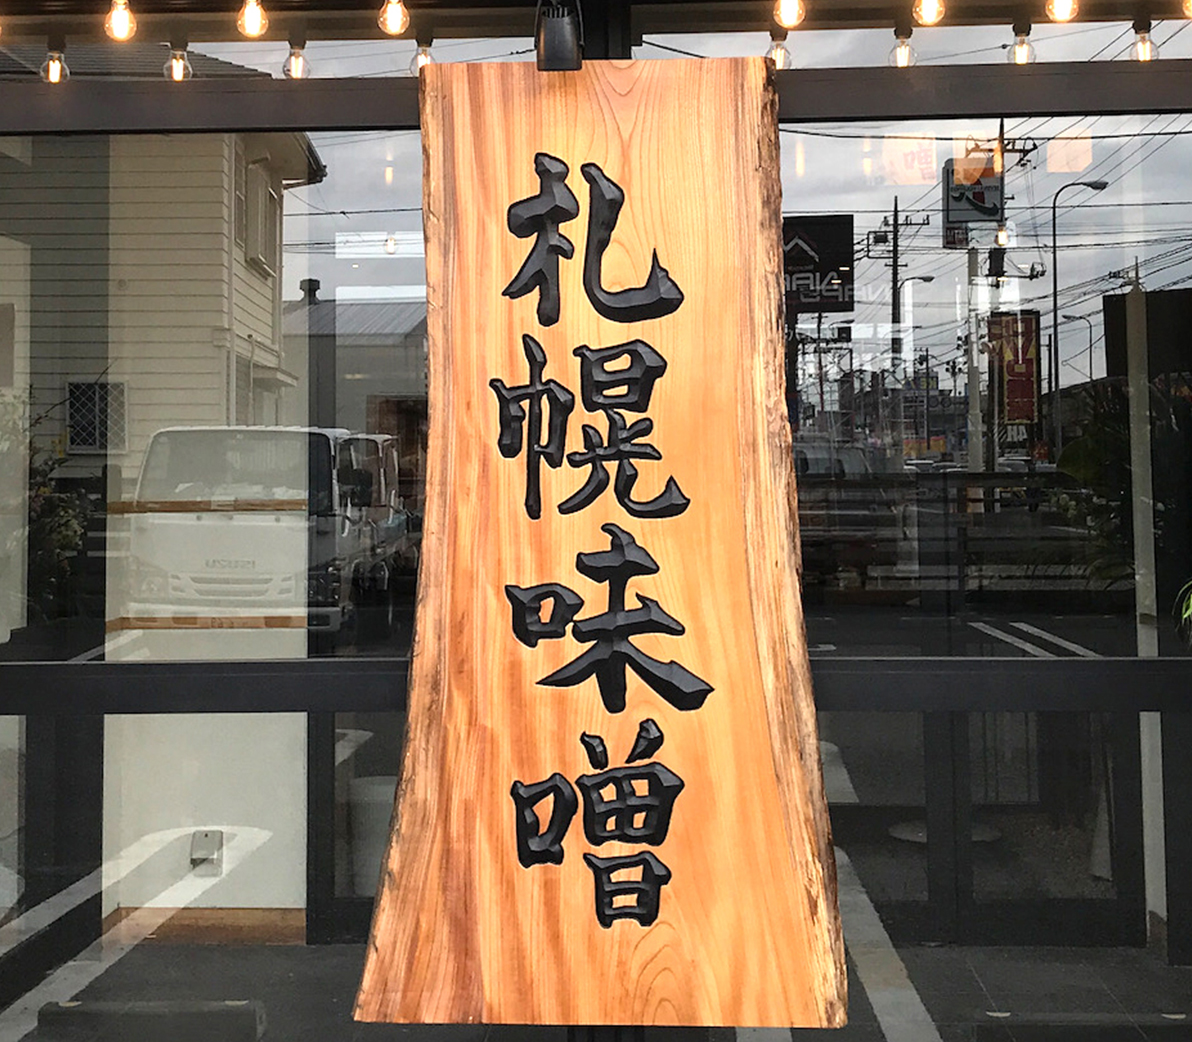 札幌味噌
ISUZU